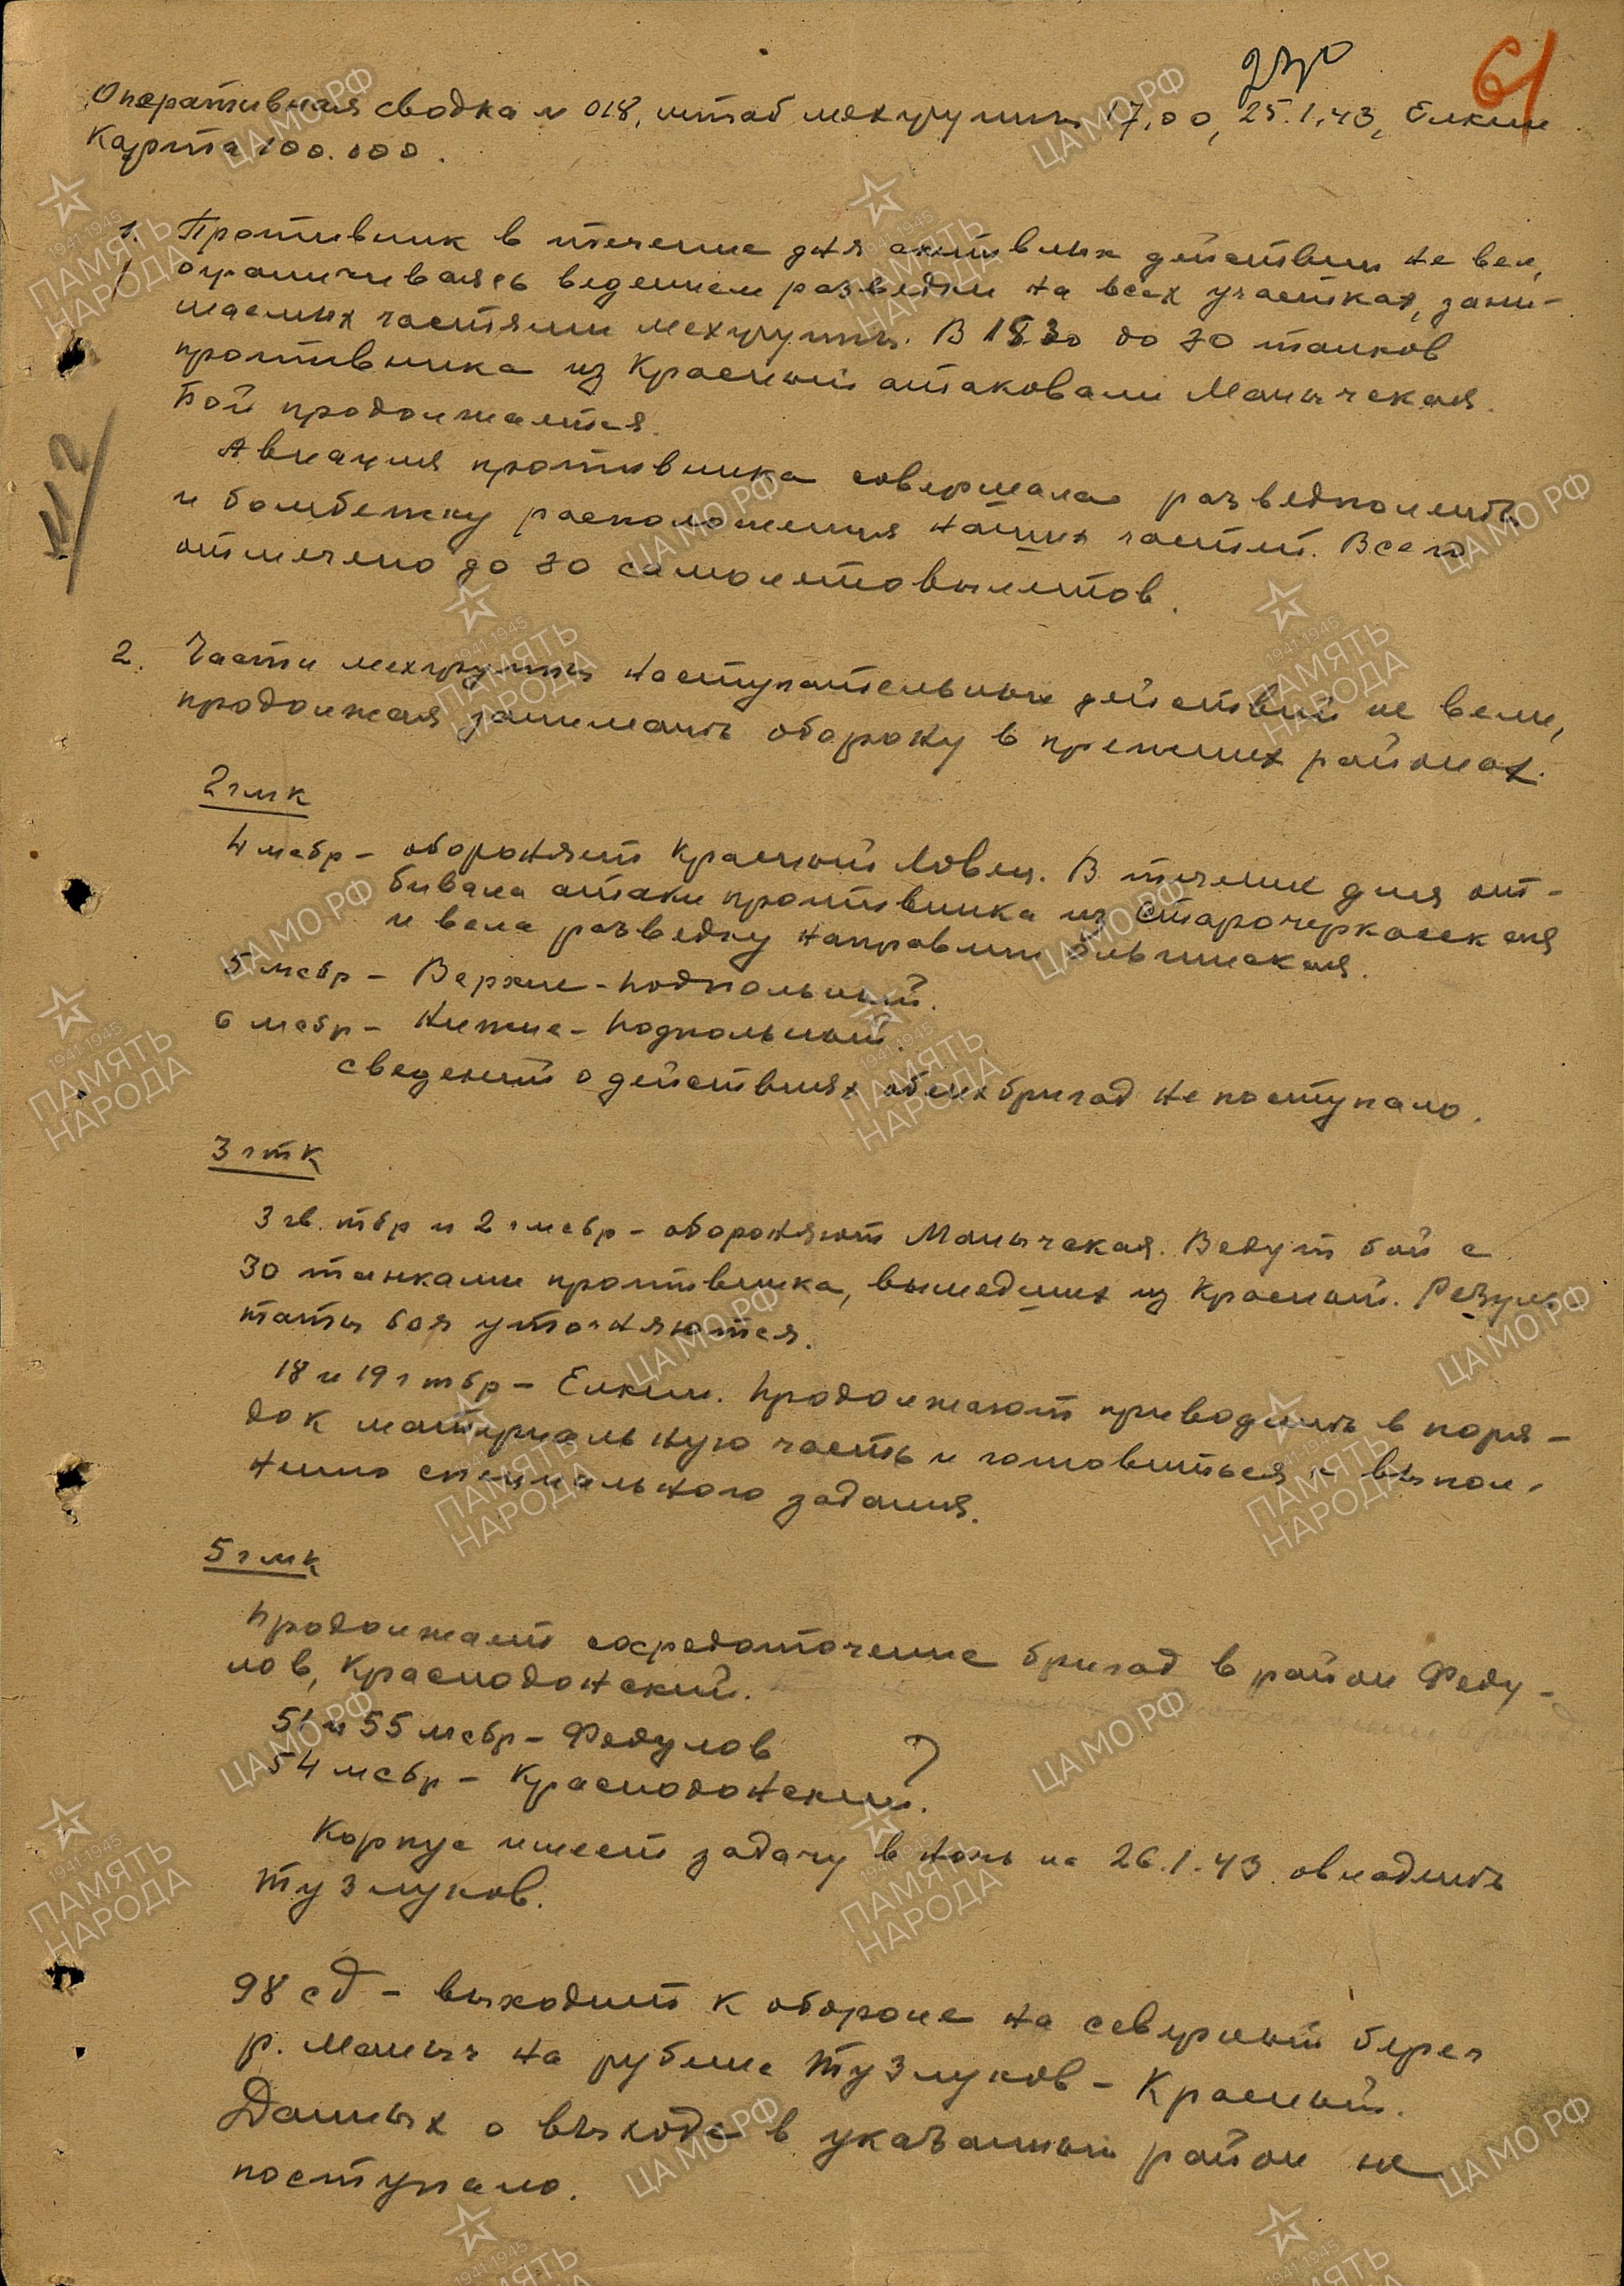 230
61
Оперативная сводка N 018, штаб мехгруппы 17.00, 25.1.43, Елкин
Карта 100.000.
1. Противник в течение дня активных действий не вел,
ограничиваясь ведением разведки на всех участках, зани-
маемых частями мехгруппы. В до 30 танков
противника из Красный атаковали Манычская.
Бой продолжается.
Авиация противника совершала разведполеты
и бомбежку расположения наших частей. Всего
отмечено до 30 самолетовылетов.
2. Части мехгруппы наступательных действий не вели,
продолжая занимать оборону в прежних районах.
2 гмк
4 мебр – обороняет Красный Ловец. В течение дня от-
бивала атаки противника из Старочеркасская
и вела разведку направлении Ольгинская.
5 мебр – Верхне-Подпольный.
6 мебр – Нижне-Подпольный.
Сведений о действиях обеих бригад не поступало.
3 гтк
3 гв. тбр и 2 гмебр – обороняют Манычская. Ведут бой с
30 танками противника, вышедших из Красный. Резуль-
таты боя уточняются.
18 и 19 гтбр – Елкин. Продолжают приводить в поря-
док материальную часть и готовиться к выпол-
нению специального задания.
5 гмк
Продолжает сосредоточение бригад в район Феду-
лов, Краснодонский.
51 и 55 мебр – Федулов
54 мебр – Краснодонский. ?
Корпус имеет задачу в ночь на 26.1.43 овладеть
Тузлуков.
98 сд – выходит к обороне на северный берег
р. Маныч на рубеже Тузлуков – Красный.
Данных о выходе в указанный район не
поступало.
ЦА МО РФ
1941-1945
ПАМЯТЬ
НАРОДА